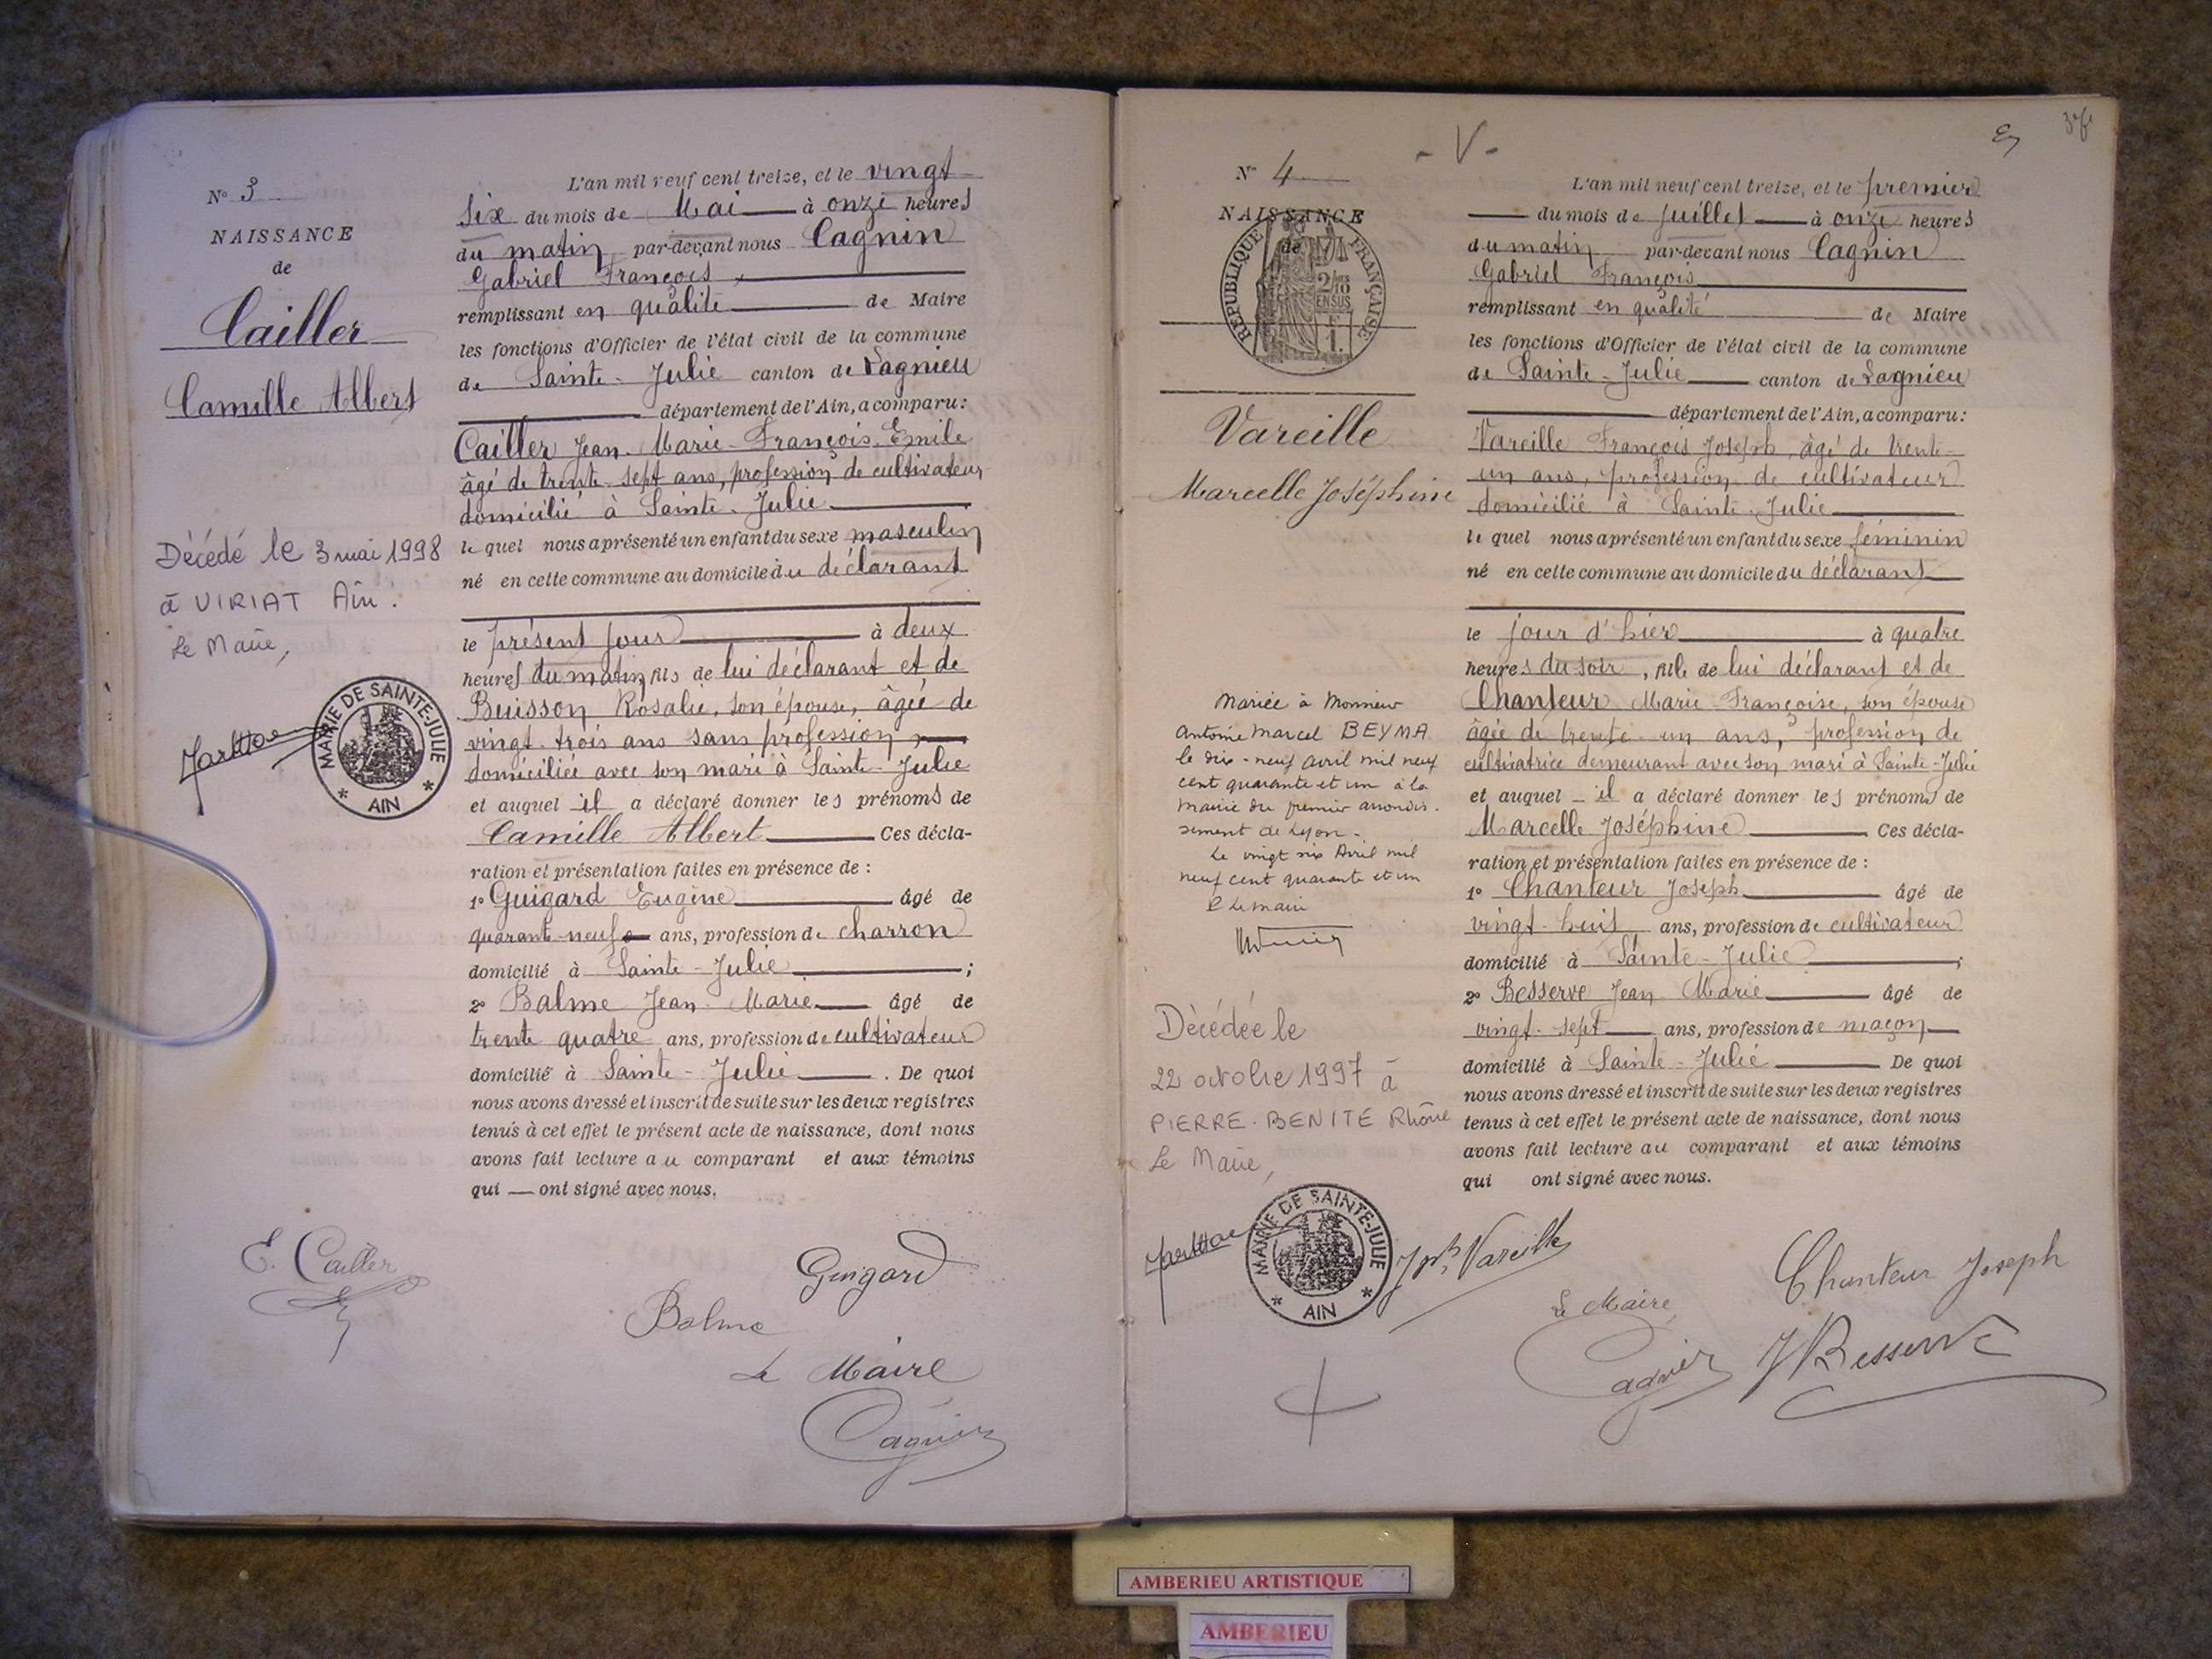 N° 3
NAISSANCE
de
Cailler
Camille Albert
Décédé le 3 mai 1998
à VIRIAT Ain.
Le Maire,
MAIRIE DE SAINTE-JULIE
* AIN *
L'an mil neuf cent treize, et le vingt
six du mois de Mai à onze heures
du matin par-devant nous Cagnin
Gabriel François,
remplissant en qualité de Maire
les fonctions d'Officier de l'état civil de la commune
de Sainte-Julie canton de Lagnieu
département de l'Ain, a comparu:
Cailler Jean-Marie-François-Emile
âgé de trente-sept ans, profession de cultivateur
domicilié à Sainte-Julie
le quel nous a présenté un enfant du sexe masculin
né en cette commune au domicile du déclarant
le présent jour à deux
heures du matin, fils de lui déclarant et de
Buisson Rosalie, son épouse, âgée de
vingt-trois ans sans profession,
domiciliée avec son mari à Sainte-Julie
et auquel il a déclaré donner les prénoms de
Camille Albert Ces décla-
ration et présentation faites en présence de :
1° Guigard Eugène âgé de
quarante-neuf ans, profession de charron
domicilié à Sainte-Julie ;
2° Balme Jean-Marie âgé de
trente quatre ans, profession de cultivateur
domicilié à Sainte-Julie . De quoi
nous avons dressé et inscrit de suite sur les deux registres
tenus à cet effet le présent acte de naissance, dont nous
avons fait lecture au comparant et aux témoins
qui — ont signé avec nous.
E. Cailler
Guigard
Balme
Le Maire
Cagnin
- V -
N° 4
NAISSANCE
de
RÉPUBLIQUE FRANÇAISE
2/10
EN SUS
Vareille
Marcelle Joséphine
Mariée à Monsieur
Antoine Marcel BEYMA
le dix-neuf avril mil neuf
cent quarante et un à la
mairie du premier arrondis-
sement de Lyon -
Le vingt six Avril mil
neuf cent quarante et un
Le maire
Décédée le
22 octobre 1997 à
PIERRE-BENITE Rhône
Le Maire,
MAIRIE DE SAINTE-JULIE
* AIN *
L'an mil neuf cent treize, et le premier
du mois de Juillet à onze heures
du matin par-devant nous Cagnin
Gabriel François
remplissant en qualité de Maire
les fonctions d'Officier de l'état civil de la commune
de Sainte-Julie canton de Lagnieu
département de l'Ain, a comparu:
Vareille François Joseph, âgé de trente-
un ans, profession de cultivateur
domicilié à Sainte-Julie
le quel nous a présenté un enfant du sexe féminin
né en cette commune au domicile du déclarant
le jour d'hier à quatre
heures du soir, fille de lui déclarant et de
Chanteur Marie-Françoise, son épouse
âgée de trente-un ans, profession de
cultivatrice demeurant avec son mari à Sainte-Julie
et auquel il a déclaré donner les prénoms de
Marcelle Joséphine Ces décla-
ration et présentation faites en présence de :
1° Chanteur Joseph âgé de
vingt-huit ans, profession de cultivateur
domicilié à Sainte-Julie ;
2° Besserve Jean-Marie âgé de
vingt-sept ans, profession de maçon
domicilié à Sainte-Julie De quoi
nous avons dressé et inscrit de suite sur les deux registres
tenus à cet effet le présent acte de naissance, dont nous
avons fait lecture au comparant et aux témoins
qui ont signé avec nous.
Jph Vareille
Chanteur Joseph
Le Maire
Cagnin
J Besserve
AMBERIEU ARTISTIQUE
AMBERIEU